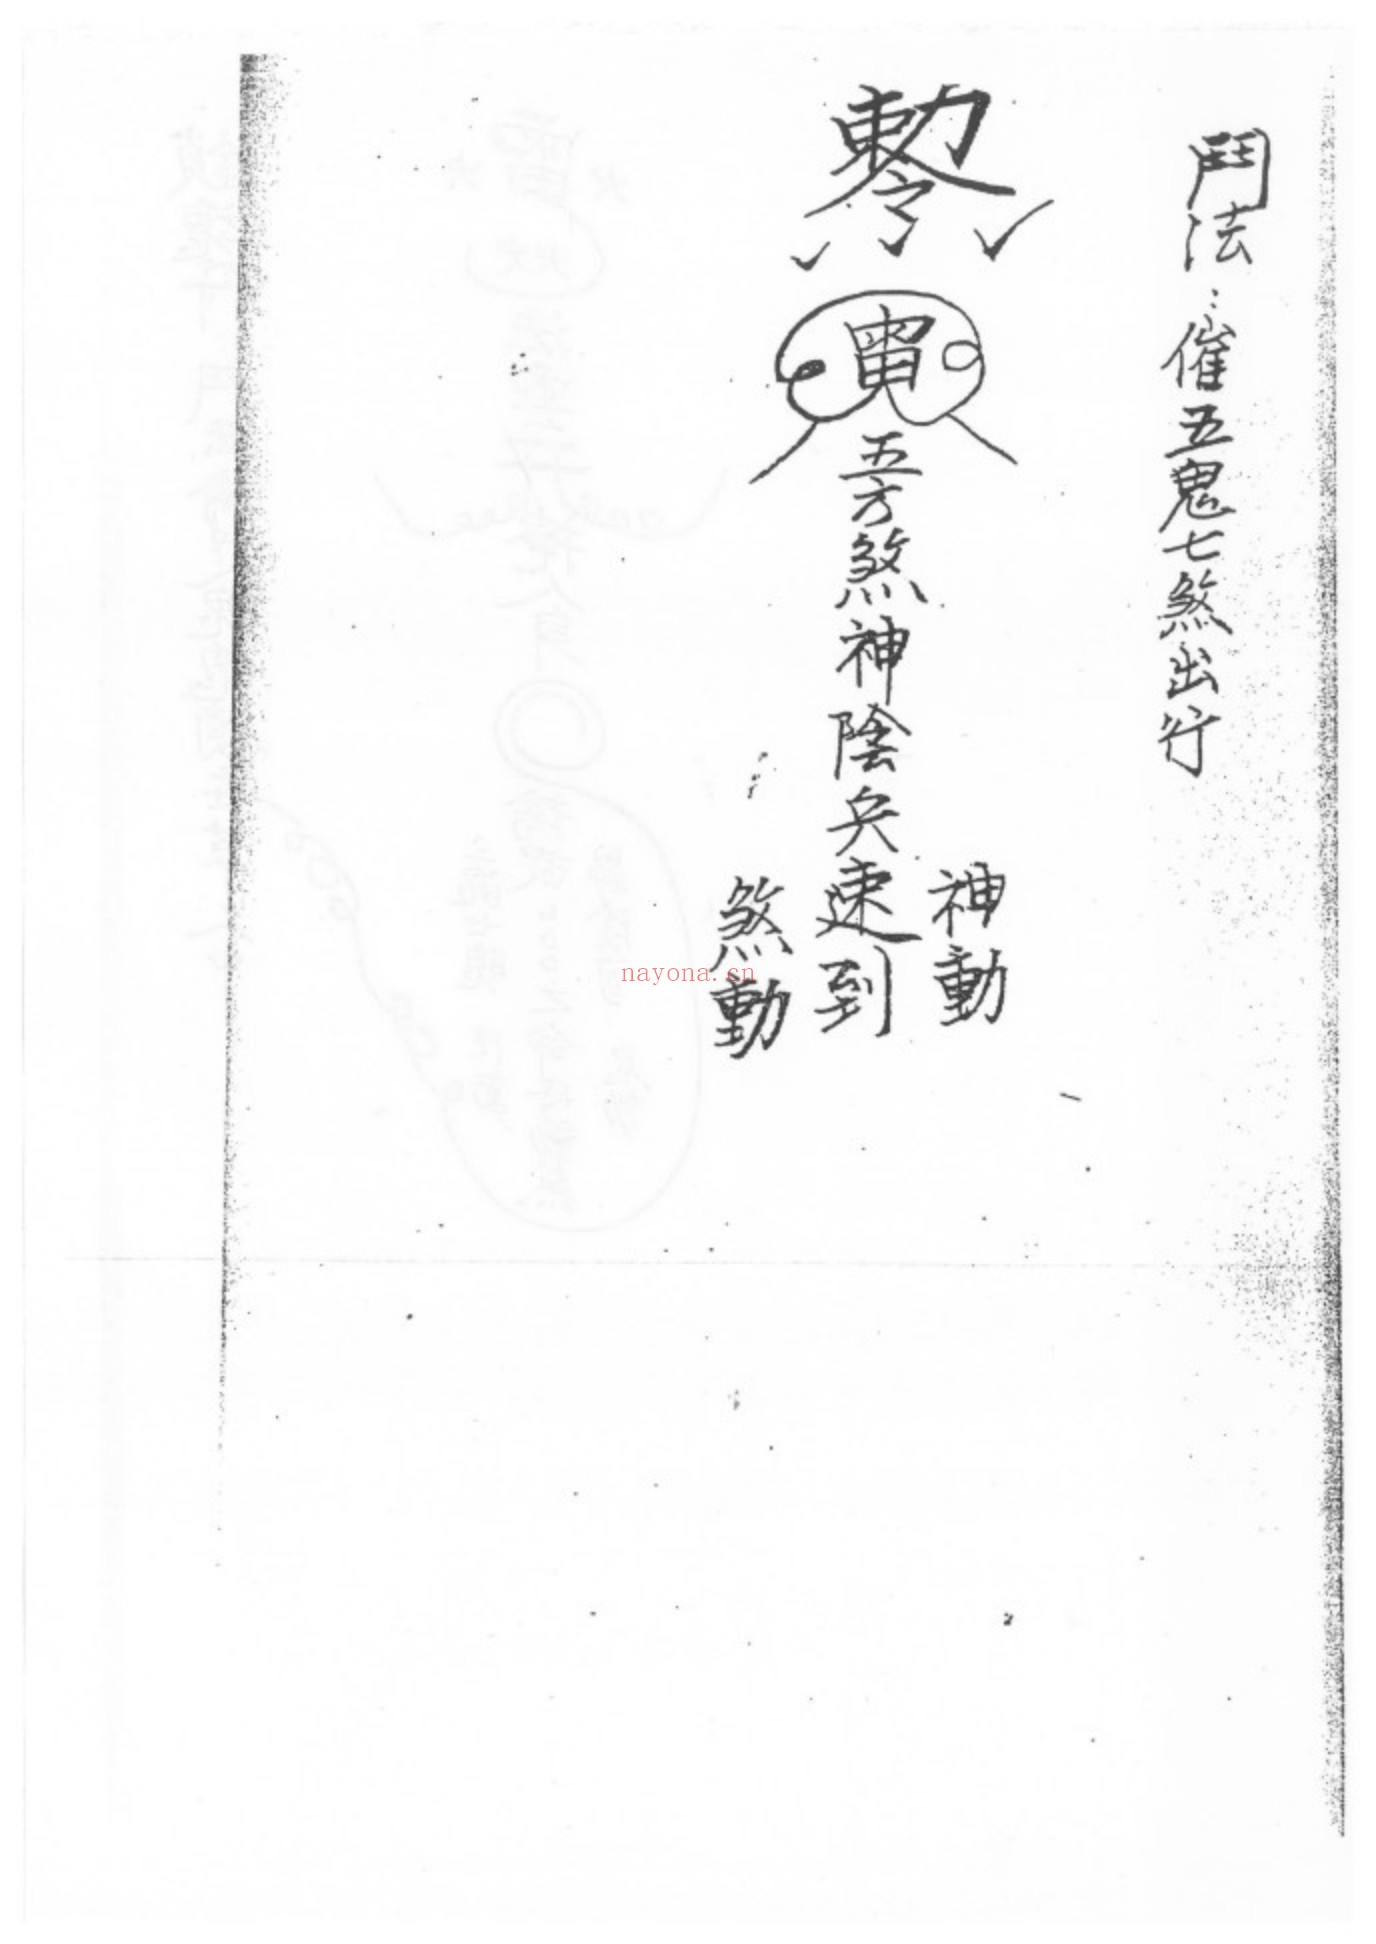 鬥法：催五鬼七煞出行
勅令
雷
五方煞神陰兵速到
神動
煞動
nayona.cn